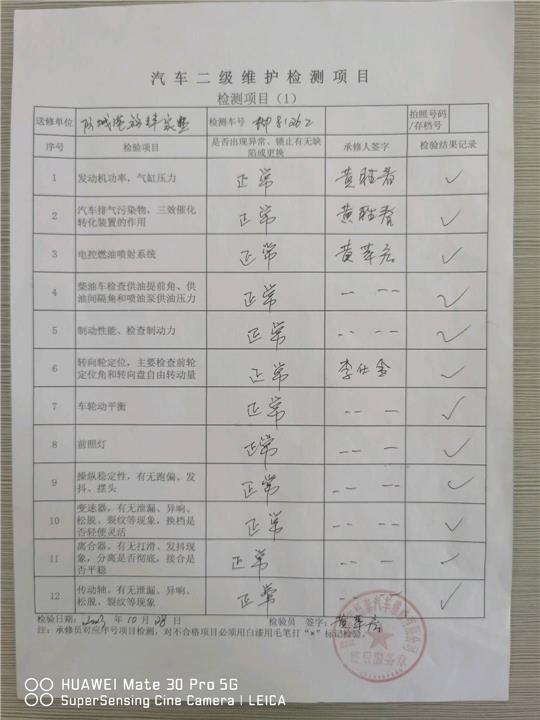 汽车二级维护检测项目
检测项目（1）
送修单位 检测车号 拍照号码/存档号
序号 检验项目 是否出现异常、锁止有无缺陷或更换 承修人签字 检验结果记录
1 发动机功率，气缸压力 正常 黄胜春 ✓
2 汽车排气污染物，三效催化转化装置的作用 正常 黄胜春 ✓
3 电控燃油喷射系统 正常 黄革宏 ✓
4 柴油车检查供油提前角、供油间隔角和喷油泵供油压力 正常 — — — ✓
5 制动性能、检查制动力 正常 — — — ✓
6 转向轮定位，主要检查前轮定位角和转向盘自由转动量 正常 李仕金 ✓
7 车轮动平衡 正常 — — — ✓
8 前照灯 正常 — — — ✓
9 操纵稳定性，有无跑偏、发抖、摆头 正常 — — — ✓
10 变速器，有无泄漏、异响、松脱、裂纹等现象，换档是否轻便灵活 正常 — — — ✓
11 离合器，有无打滑、发抖现象，分离是否彻底，接合是否平稳 正常 — — — ✓
12 传动轴，有无泄漏、异响、松脱、裂纹等现象 正常 — — — ✓
检验日期：2023年10月28日 检验员 签字：黄革宏
注：承修员对应序号项目检测，对不合格项目必须用白漆用毛笔打“×”标记检验。
HUAWEI Mate 30 Pro 5G
SuperSensing Cine Camera | LEICA